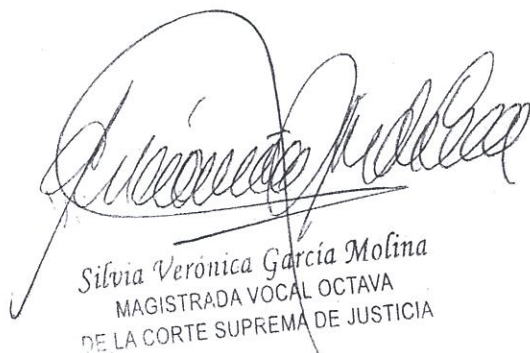 Silvia Verónica García Molina
MAGISTRADA VOCAL OCTAVA
DE LA CORTE SUPREMA DE JUSTICIA